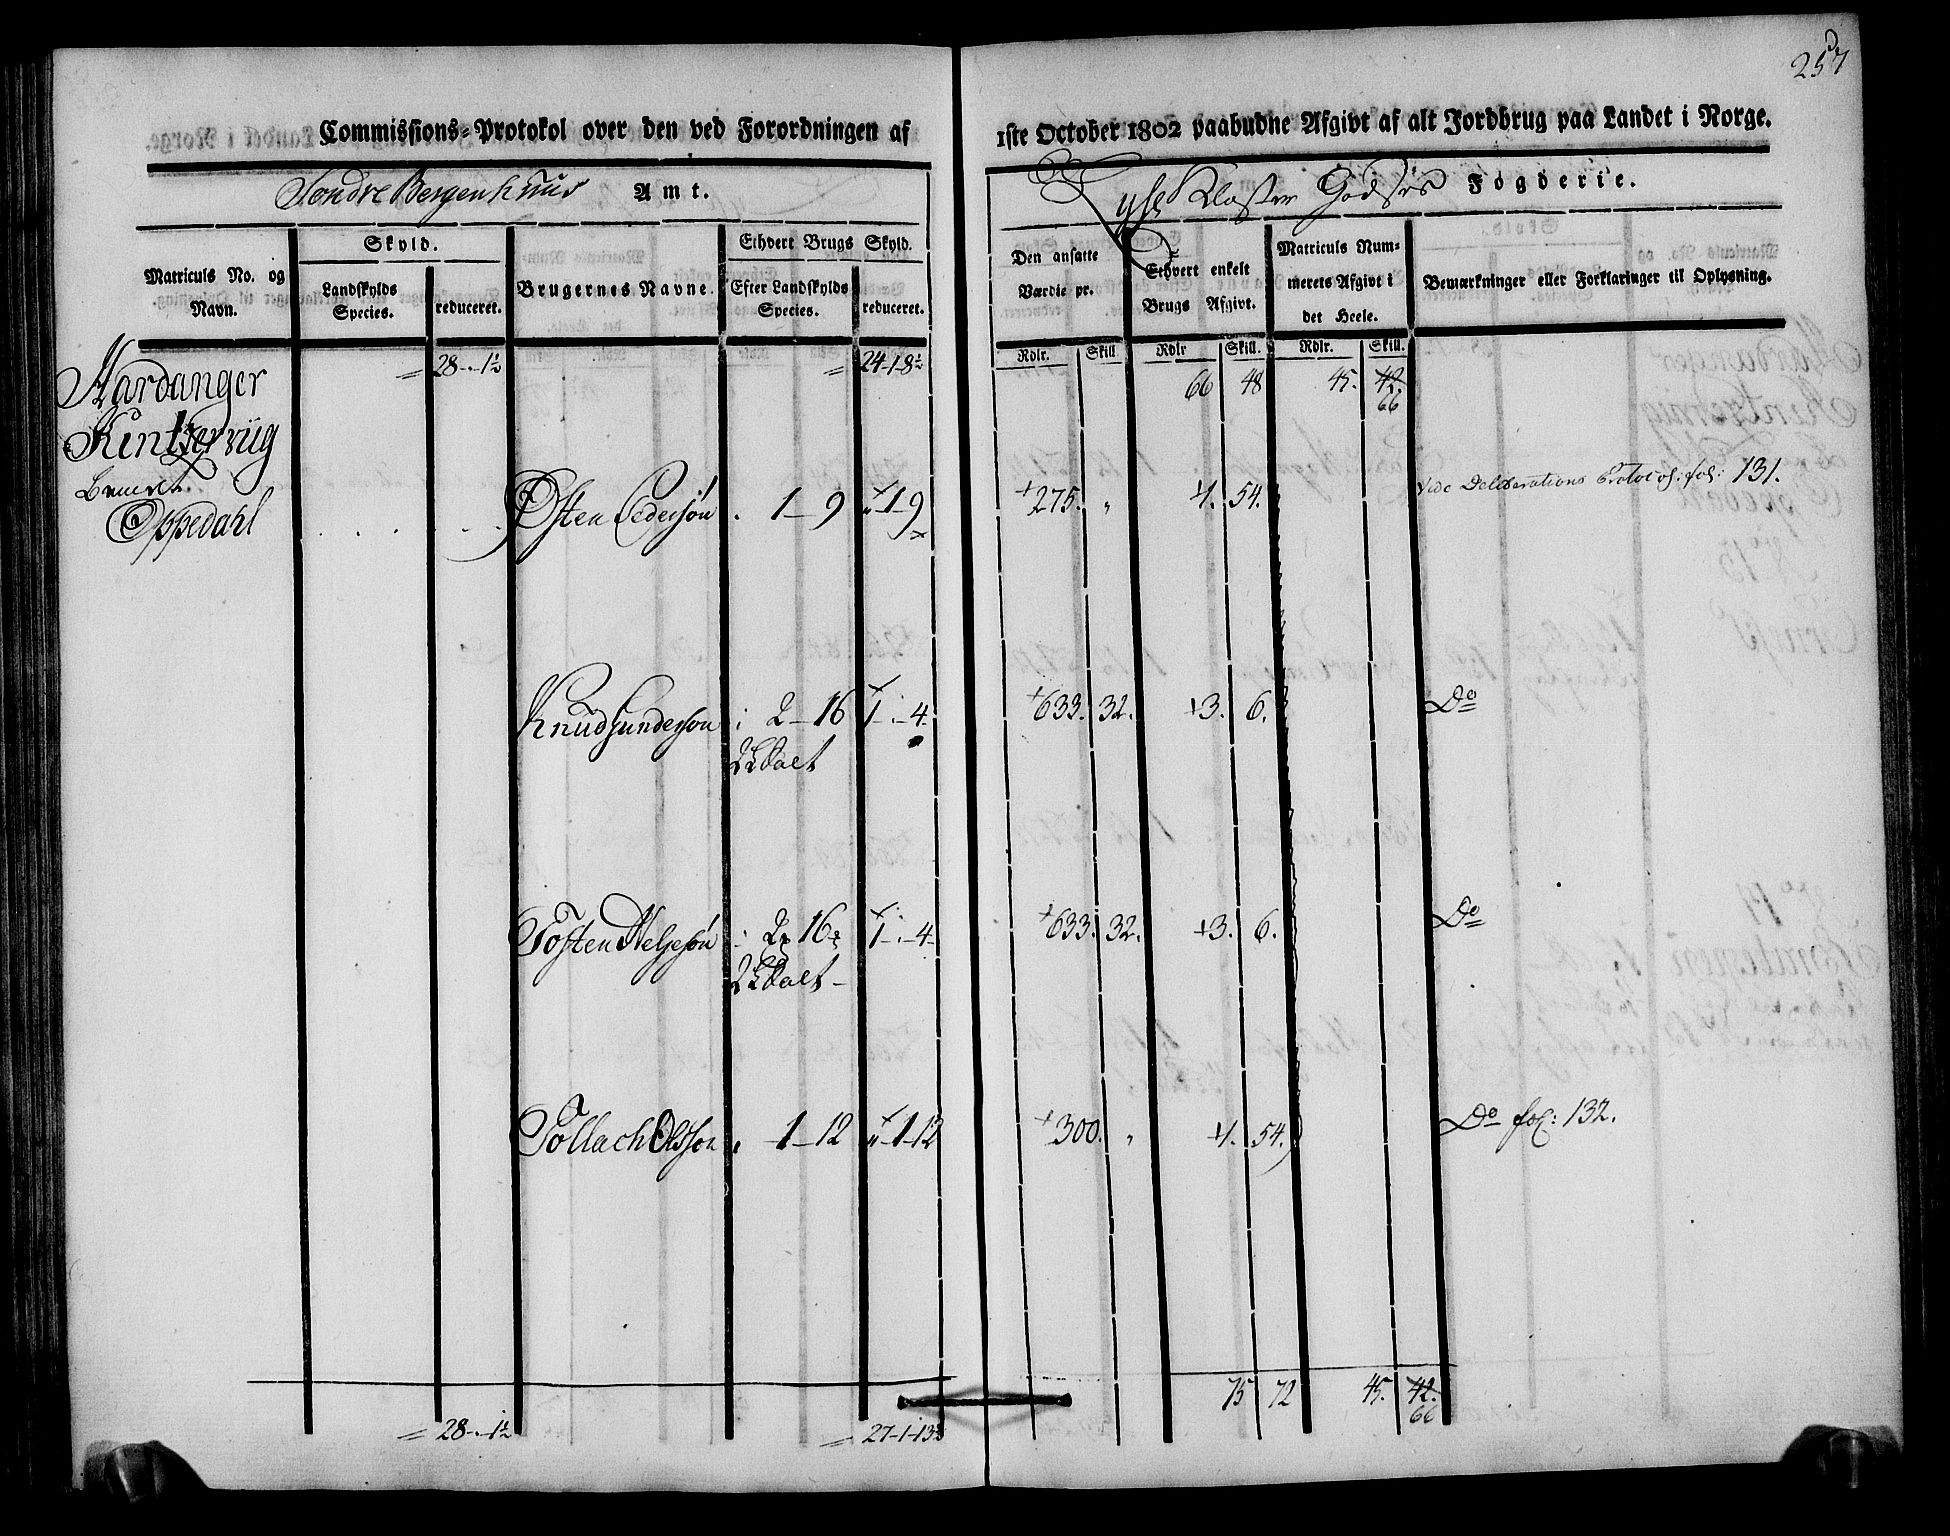 257
Commissions-Protokol over den ved Forordningen af 1ste October 1802 paabudne Afgivt af alt Jordbrug paa Landet i Norge.
Søndre Bergenhuus Amt.
Lyse Kloster Godses Fogderie.
Matriculs No. og Navn.
Skyld.
Landskylds Species.
reduceret.
Brugernes Navne.
Ethvert Brugs Skyld.
Efter Landskylds Species.
reduceret.
Den ansatte Værdie pr.
Ethvert enkelt Brugs Afgivt.
Matriculs Nummerets Afgivt i det Heele.
Bemærkninger eller Forklaringer til Oplysning.
Rdlr. Skill. Rdlr Skill. Rdlr. Skill.
Hardanger = 28-.-1½ = 24-1-8½ 66 48 45. 42.
66
Kintzerviig
Oppedahl Østen Pedersøn . 1-9 "-1-9 275. " 1. 54. Vide Deliberations Protocol: fol: 131.
Knud Gundersøn : 2-16 1-.-4. 633. 32. 3. 6. Do
2 Salt
Tosten Helgesøn : 2 16 1-.-4- 633. 32. 3. 6. Do
2 Salt-
Tollach Olsson . -1-12 "-1-12 300. " 1. 54. Do fol: 132.
= 28-.-1½ = 27-1-13½ 75 72 45. 42.
66